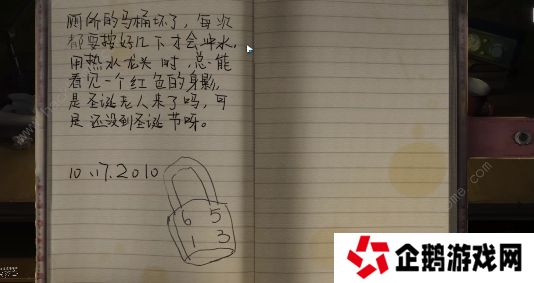 厕所的马桶坏了，每次
都要按好几下才会冲水，
用热水龙头时，总能
看见一个红色的身影，
是圣诞老人来了吗，可
是还没到圣诞节呀。
10.17.2010
6 5
1 3
企鹅游戏网